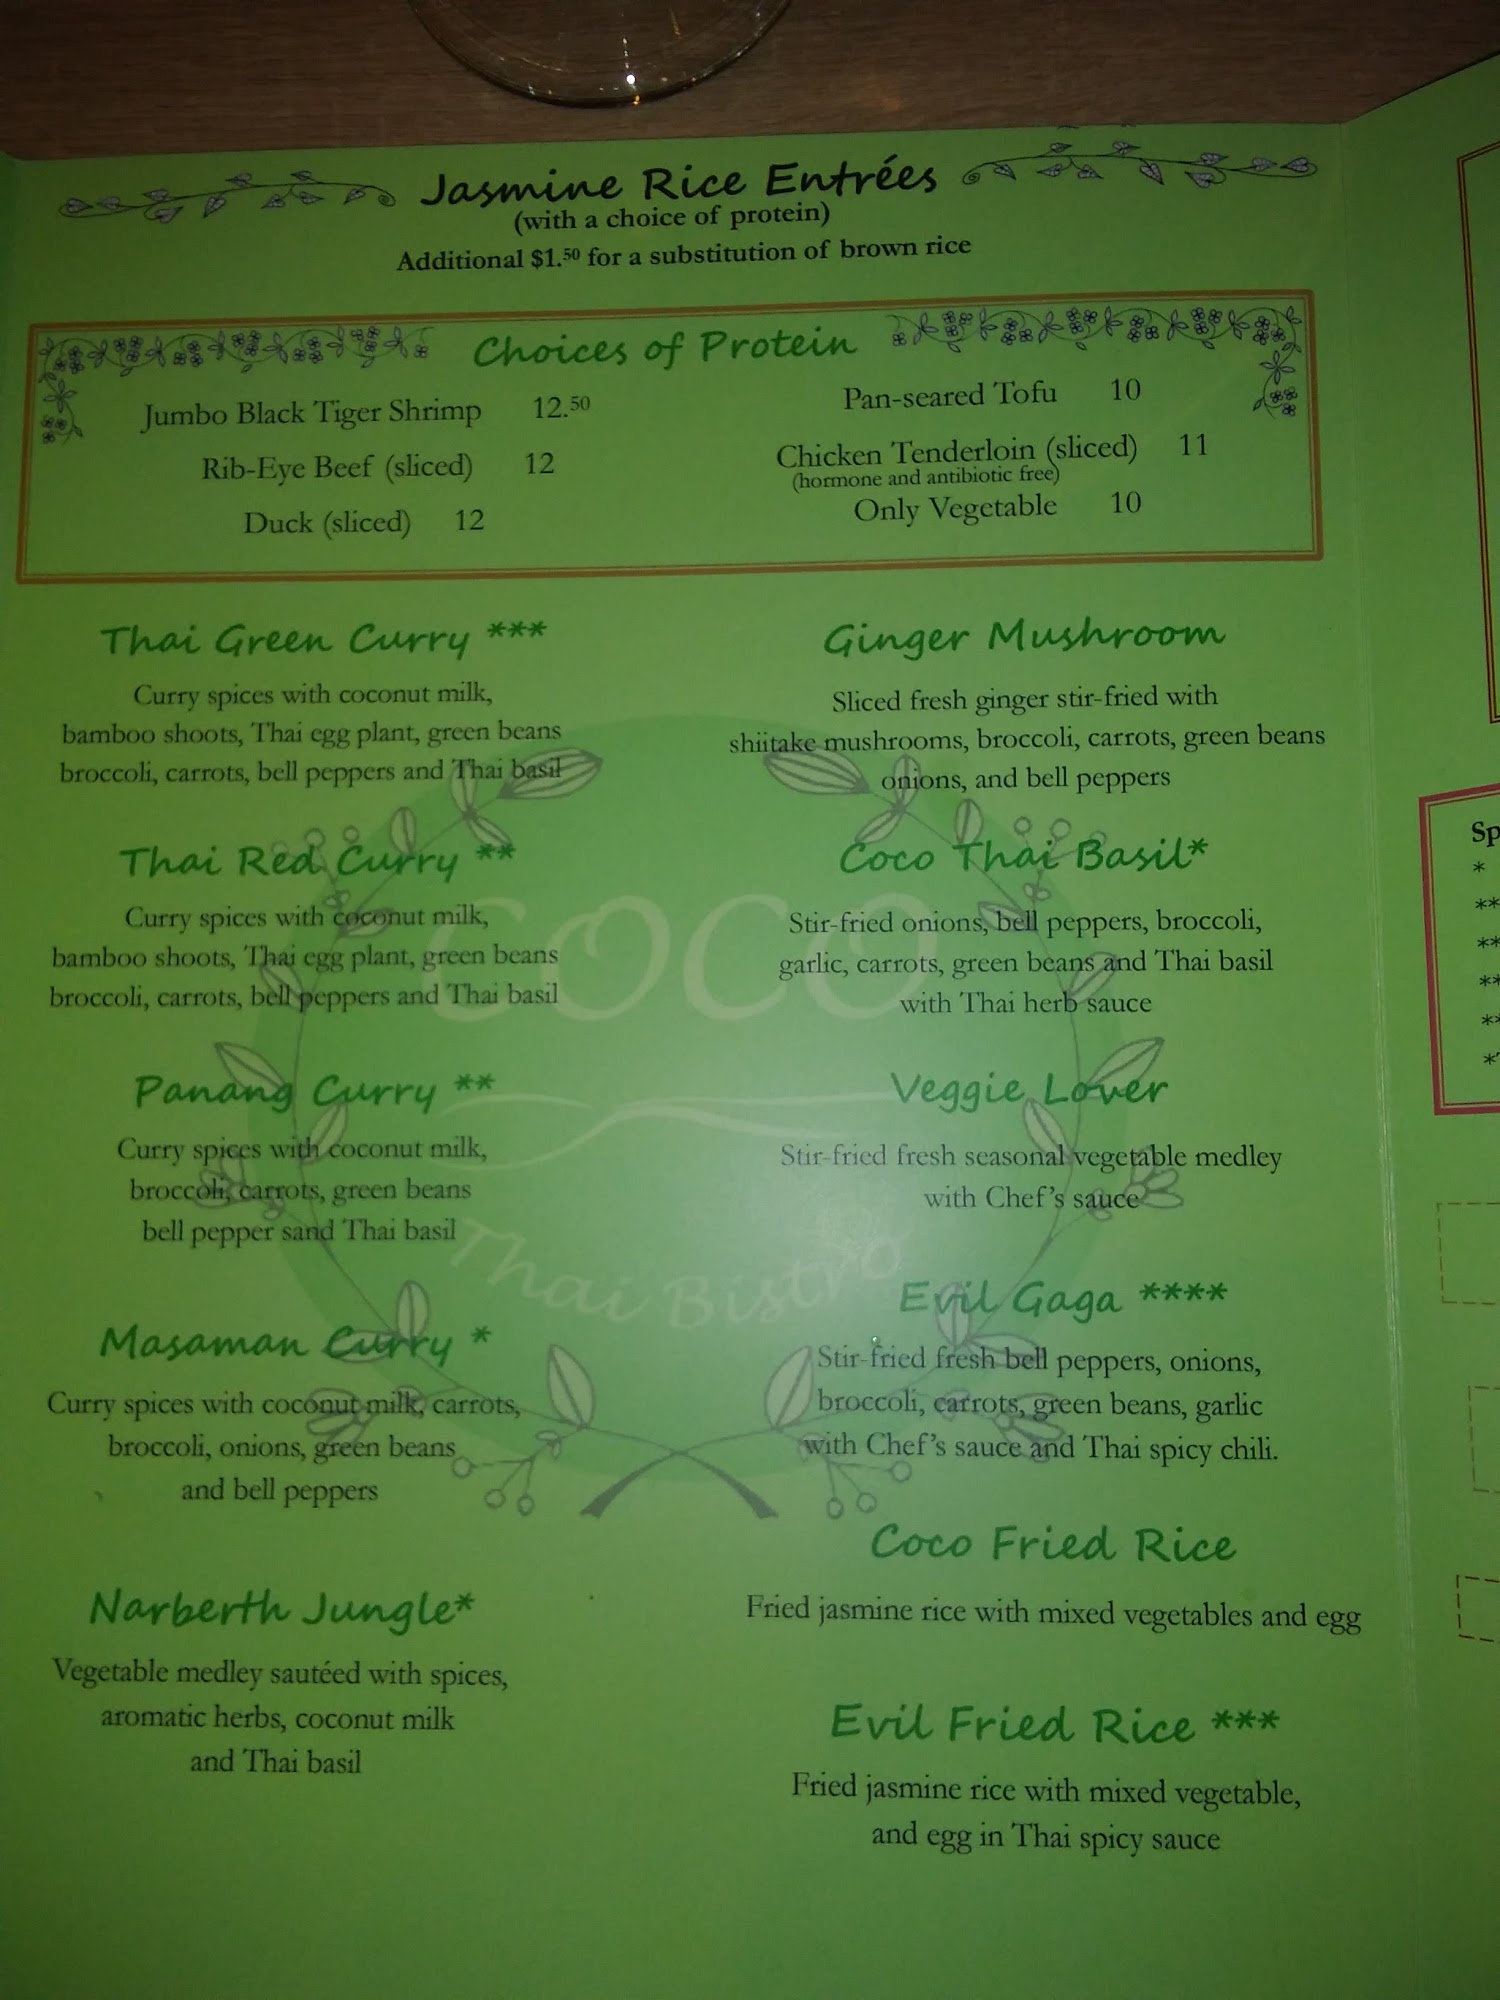 Jasmine Rice Entrées
(with a choice of protein)
Additional $1.50 for a substitution of brown rice
Choices of Protein
Jumbo Black Tiger Shrimp 12.50
Rib-Eye Beef (sliced) 12
Duck (sliced) 12
Pan-seared Tofu 10
Chicken Tenderloin (sliced) 11
(hormone and antibiotic free)
Only Vegetable 10
Thai Green Curry ***
Curry spices with coconut milk,
bamboo shoots, Thai egg plant, green beans
broccoli, carrots, bell peppers and Thai basil
Thai Red Curry **
Curry spices with coconut milk,
bamboo shoots, Thai egg plant, green beans
broccoli, carrots, bell peppers and Thai basil
Panang Curry **
Curry spices with coconut milk,
broccoli, carrots, green beans
bell pepper sand Thai basil
Masaman Curry *
Curry spices with coconut milk, carrots,
broccoli, onions, green beans
and bell peppers
Narberth Jungle*
Vegetable medley sautéed with spices,
aromatic herbs, coconut milk
and Thai basil
Ginger Mushroom
Sliced fresh ginger stir-fried with
shiitake mushrooms, broccoli, carrots, green beans
onions, and bell peppers
Coco Thai Basil*
Stir-fried onions, bell peppers, broccoli,
garlic, carrots, green beans and Thai basil
with Thai herb sauce
Veggie Lover
Stir-fried fresh seasonal vegetable medley
with Chef's sauce
Evil Gaga ****
Stir-fried fresh bell peppers, onions,
broccoli, carrots, green beans, garlic
with Chef's sauce and Thai spicy chili.
Coco Fried Rice
Fried jasmine rice with mixed vegetables and egg
Evil Fried Rice ***
Fried jasmine rice with mixed vegetable,
and egg in Thai spicy sauce
COCO
Thai Bistro